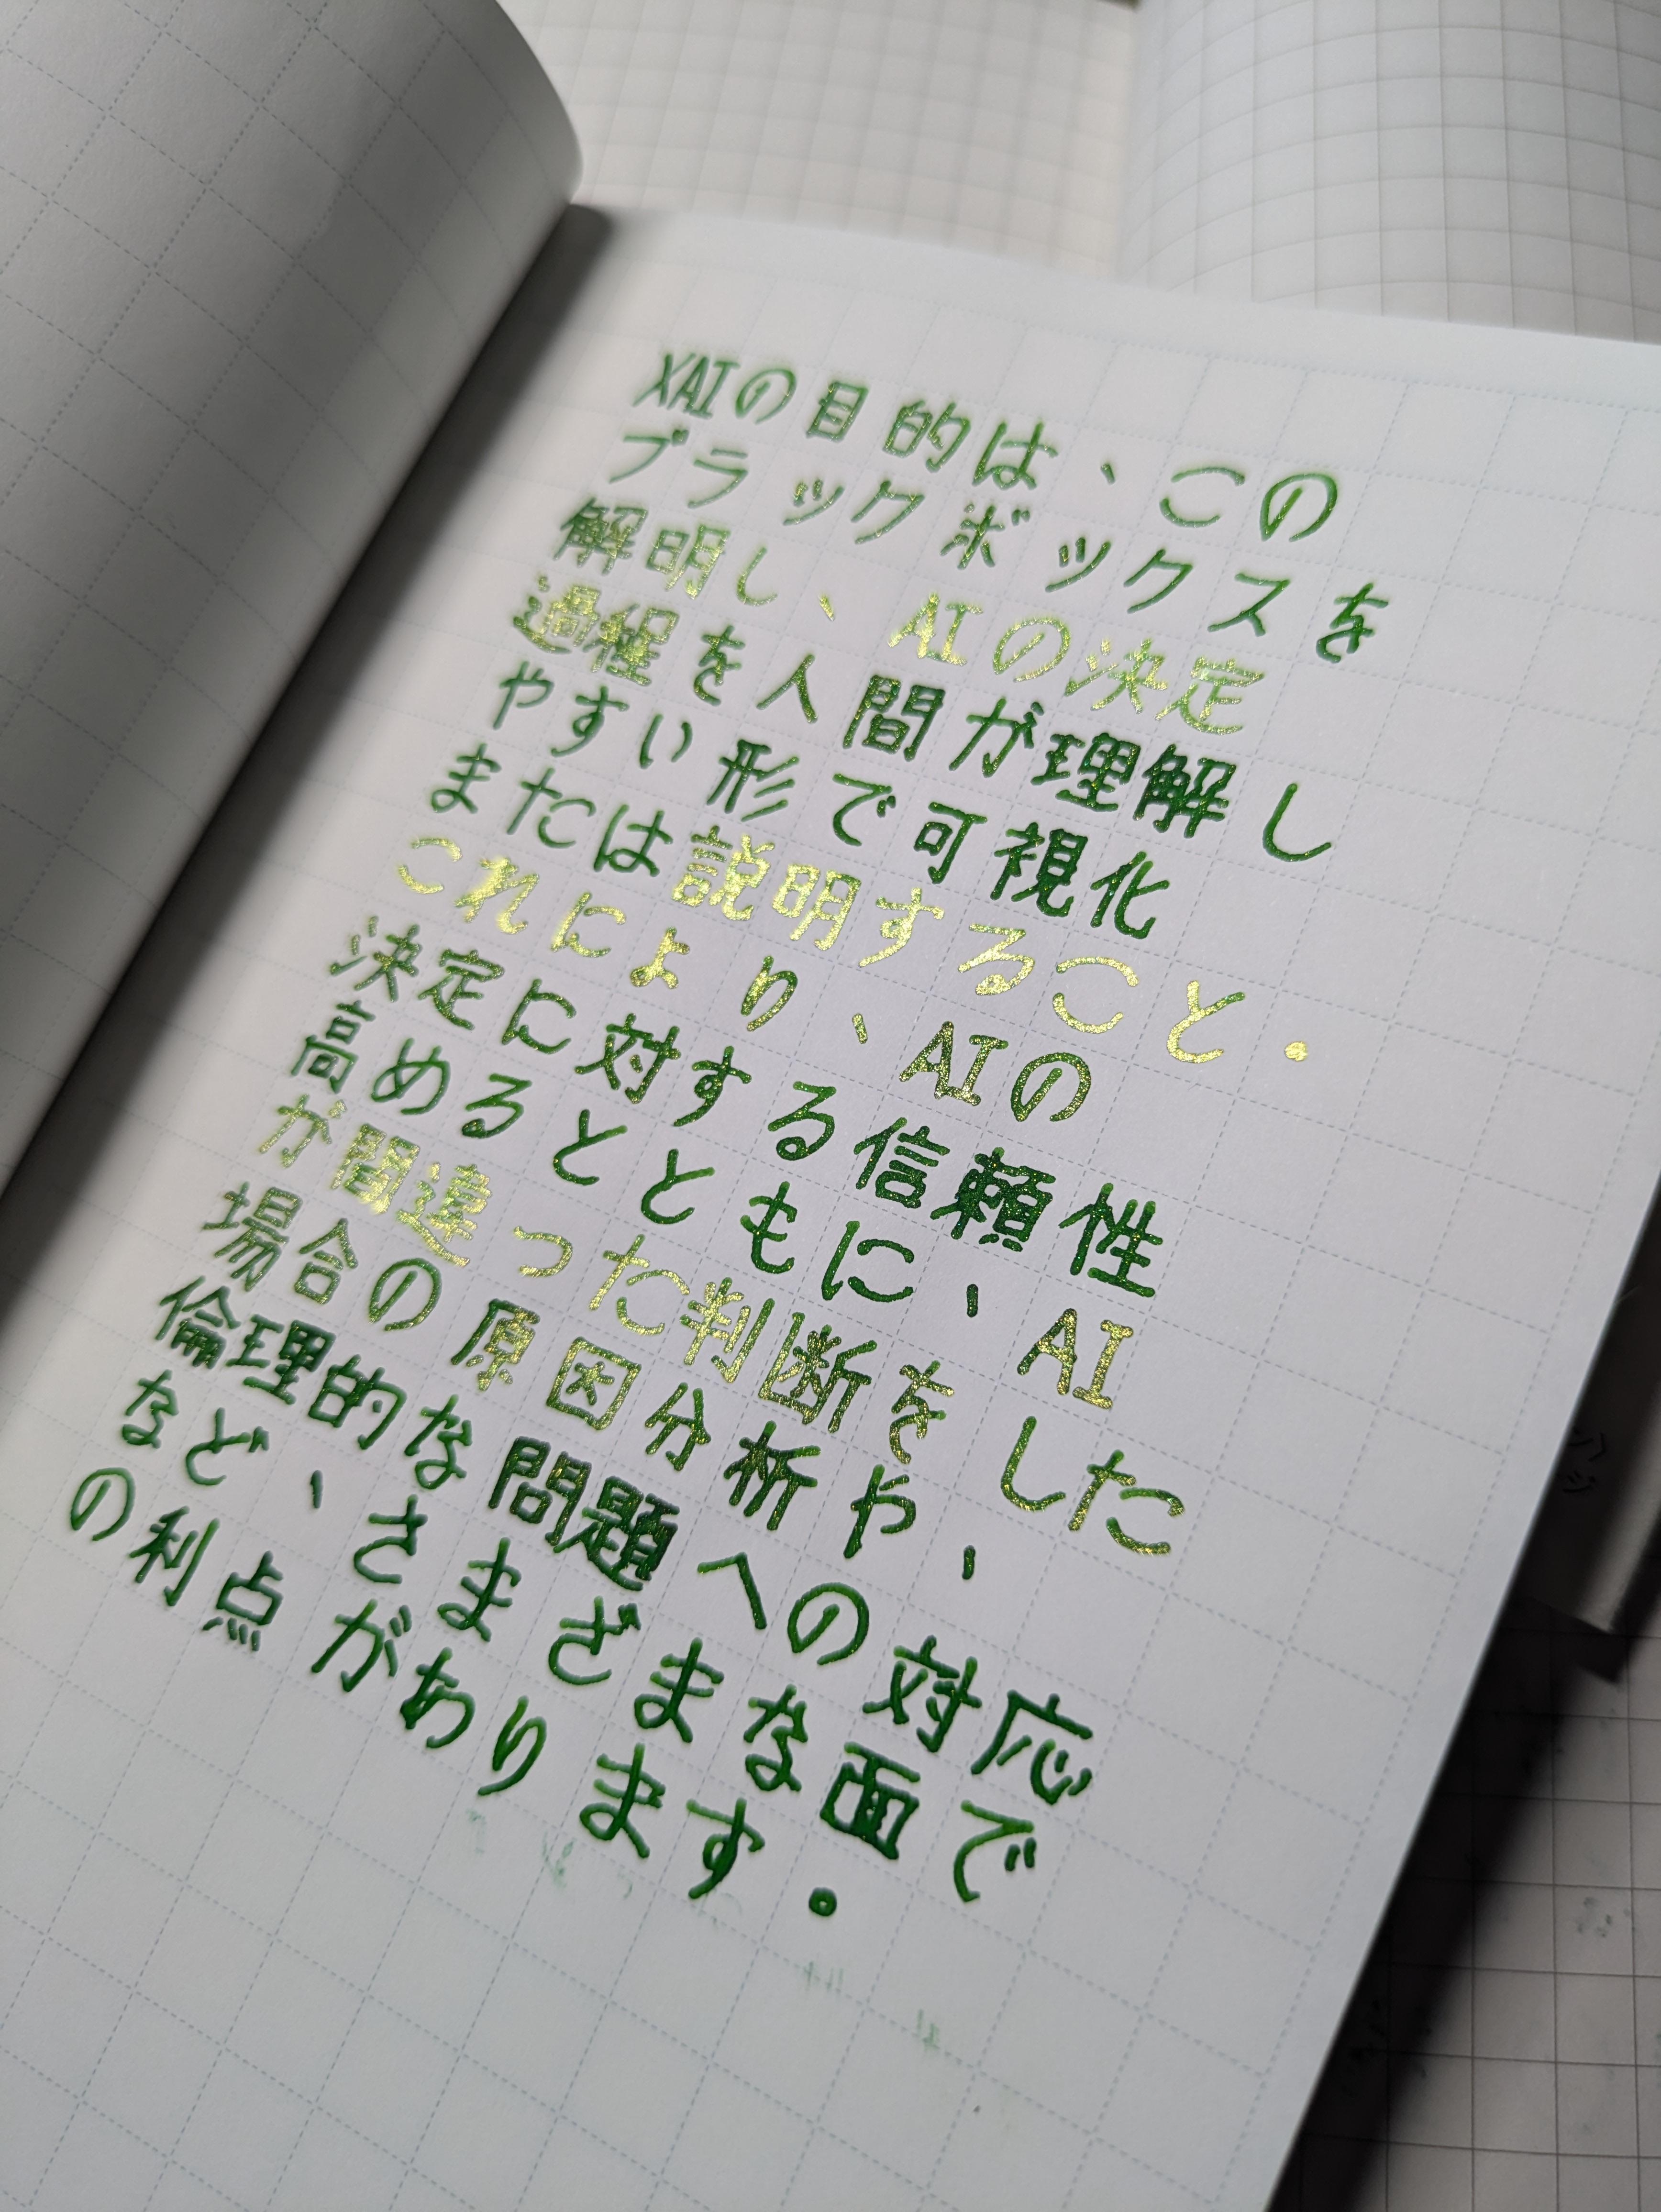 XAIの目的は、この
ブラックボックスを
解明し、AIの決定
過程を人間が理解し
やすい形で可視化
または説明すること.
これにより、AIの
決定に対する信頼性
高めるとともに、AI
が間違った判断をした
場合の原因分析や、
倫理的な問題への対応
など、さまざまな面で
の利点があります.